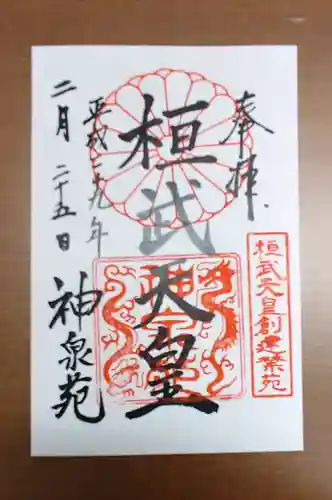 奉拝
桓武天皇
桓武天皇創建禁苑
平成二十九年
二月二十五日
神泉苑